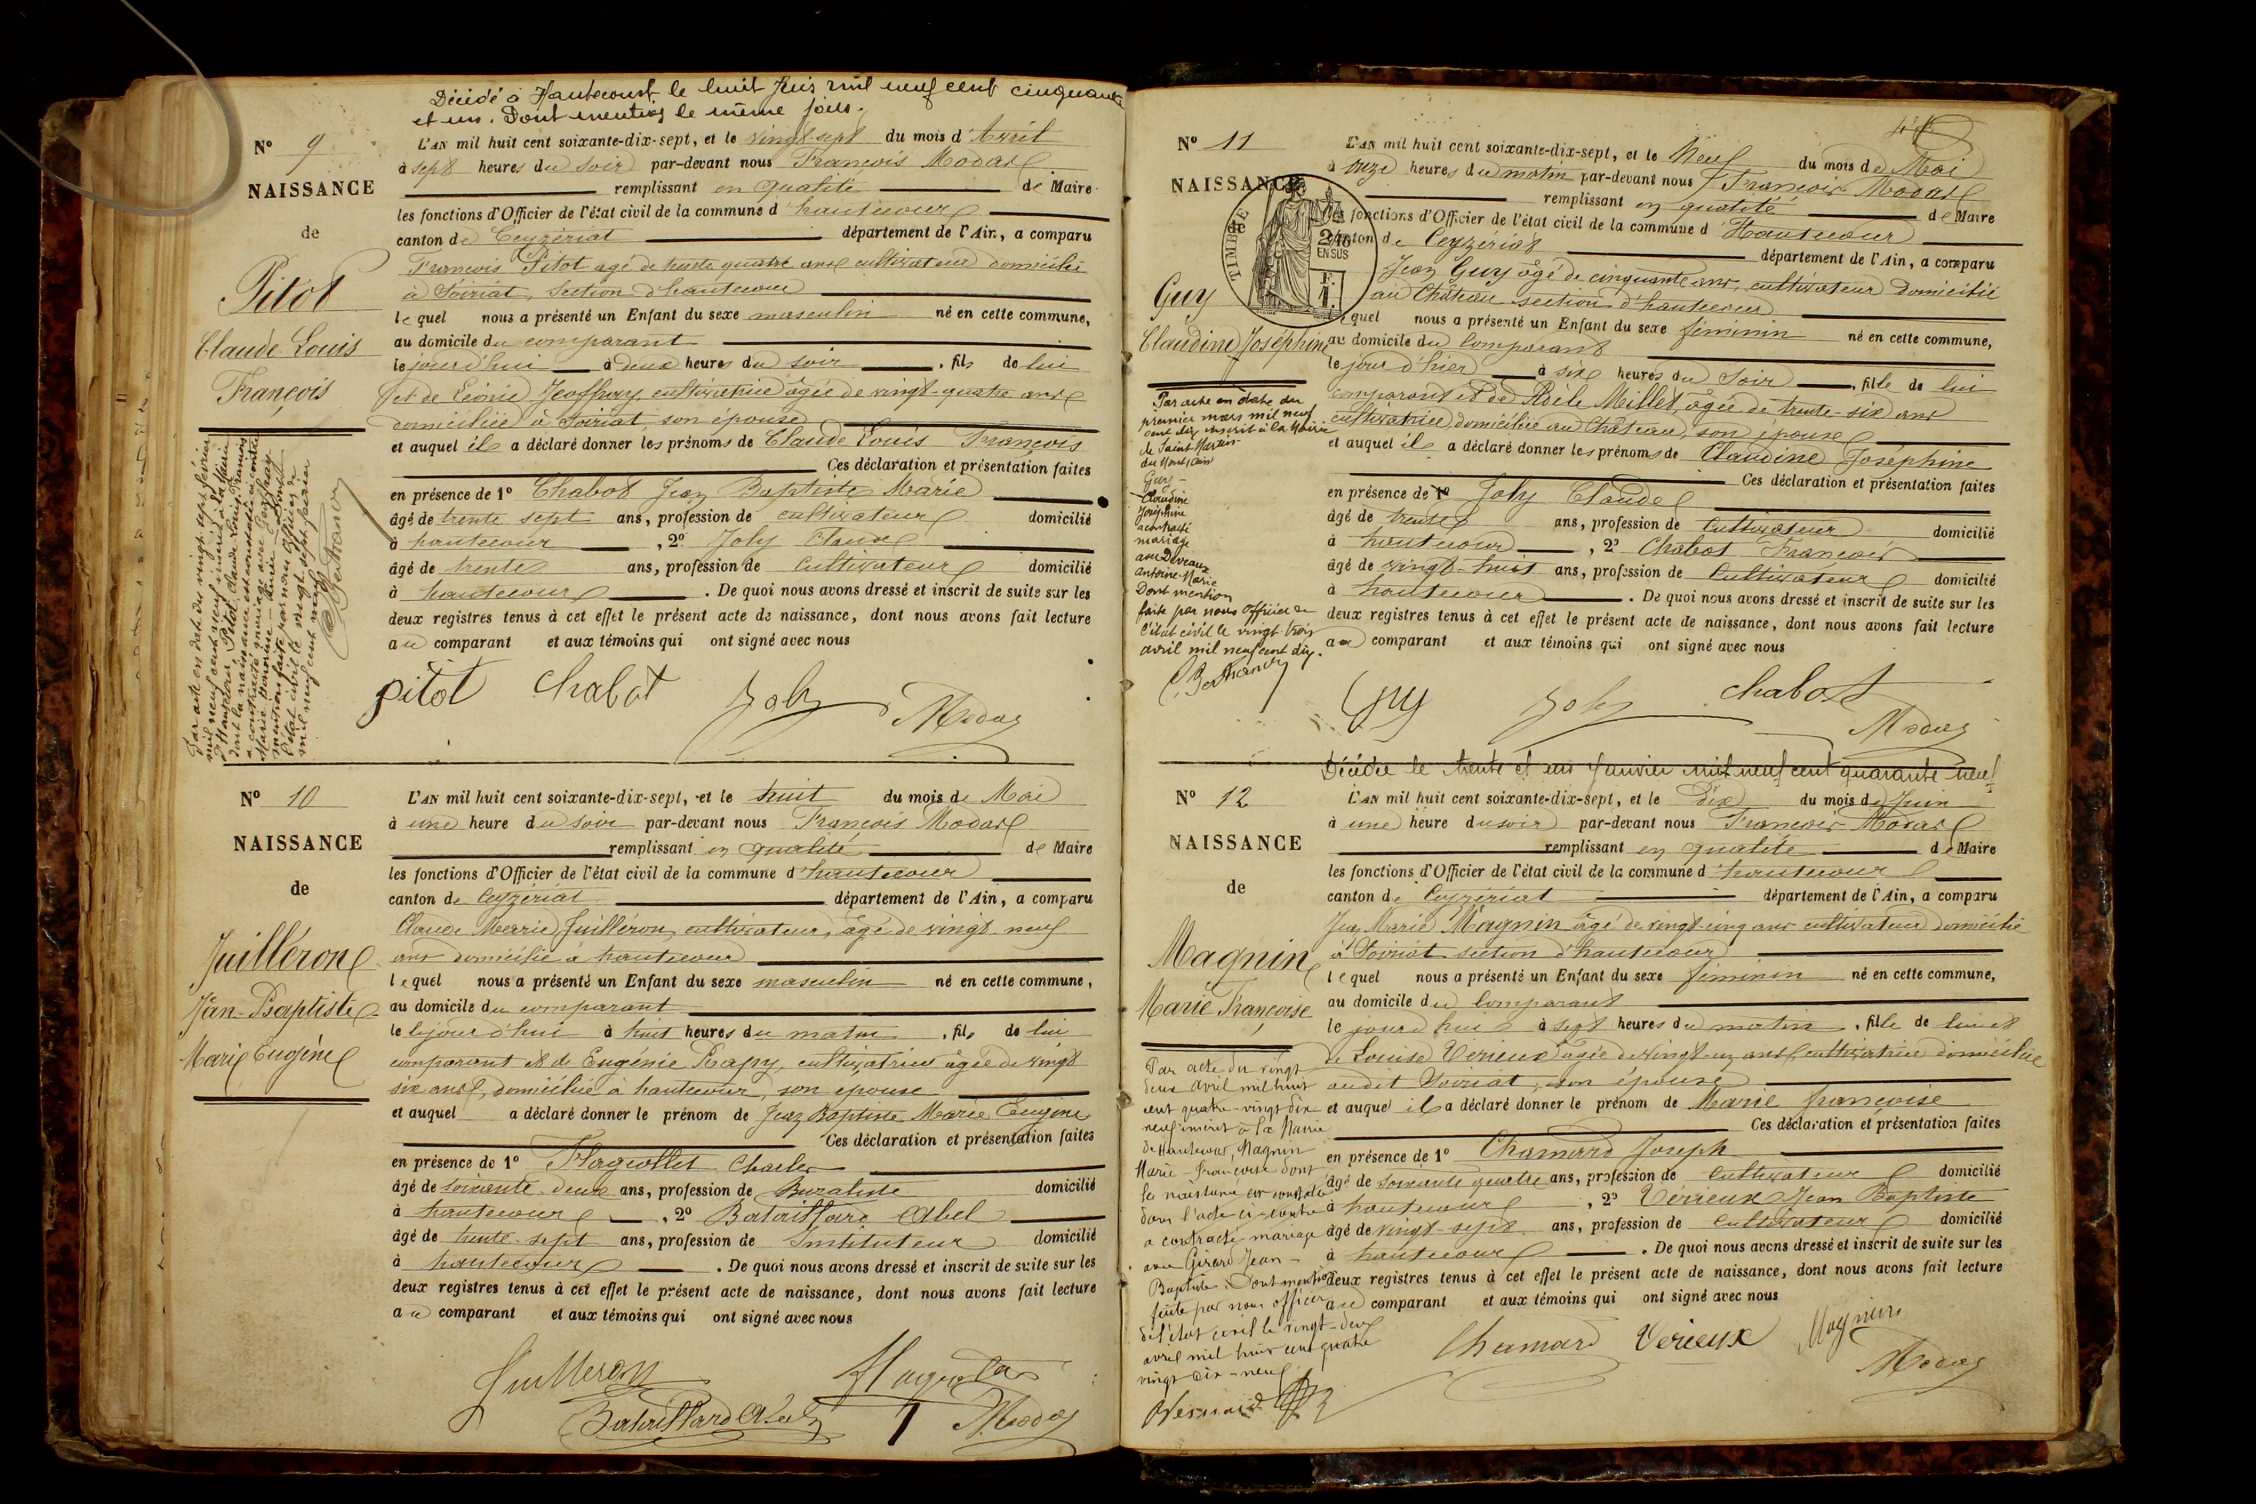 Décédé à Hautecourt le huit Juin mil neuf cent cinquante
et un. Dont mention le même jour.
N° 9
NAISSANCE
de
Pitot
Claude Louis
François
L'AN mil huit cent soixante-dix-sept, et le vingt sept du mois d'Avril
à sept heures du soir par-devant nous François Modas
remplissant en qualité de Maire
les fonctions d'Officier de l'état civil de la commune d'hautecour
canton de Ceyzériat département de l'Ain, a comparu
François Pitot agé de trente quatre ans cultivateur domicilié
à Soiriat, Section d'hautecour
lequel nous a présenté un Enfant du sexe masculin né en cette commune,
au domicile du comparant
le jourd'hui à deux heures du soir, fils de lui
et de Léonie Jeoffray cultivatrice âgée de vingt-quatre ans
domiciliée à Soiriat, son épouse
et auquel il a déclaré donner les prénoms de Claude Louis François
Ces déclaration et présentation faites
en présence de 1° Chabot Jean Baptiste Marie
âgé de trente sept ans, profession de cultivateur domicilié
à hautecour, 2° Joly Claude
âgé de trente ans, profession de Cultivateur domicilié
à hautecour. De quoi nous avons dressé et inscrit de suite sur les
deux registres tenus à cet effet le présent acte de naissance, dont nous avons fait lecture
au comparant et aux témoins qui ont signé avec nous
Par acte en date du vingt sept février
mil neuf cent neuf inscrit à la Mairie
d'Hautecour, Pitot Claude Louis François
dont la naissance est constatée ci-contre
a contracté mariage avec Geoffray
mention faite par nous officier de
l'état civil le vingt sept février
mil neuf cent neuf
pitot chabot Joly Modas
N° 10
NAISSANCE
de
Juilléron
Jean-Baptiste
Marie Eugène
L'AN mil huit cent soixante-dix-sept, et le huit du mois de Mai
à une heure du soir par-devant nous François Modas
remplissant en qualité de Maire
les fonctions d'Officier de l'état civil de la commune d'hautecour
canton de Ceyzériat département de l'Ain, a comparu
Claude Marie Juilléron, cultivateur, âgé de vingt neuf
ans domicilié à hautecour
lequel nous a présenté un Enfant du sexe masculin né en cette commune,
au domicile du comparant
le jourd'hui à huit heures du matin, fils de lui
comparant et de Eugénie Rapy, cultivatrice âgée de vingt
six ans, domiciliée à hautecour, son épouse
et auquel a déclaré donner le prénom de Jean Baptiste Marie Eugène
Ces déclaration et présentation faites
en présence de 1° Flagiollet Charles
âgé de soixante deux ans, profession de Buraliste domicilié
à hautecour, 2° Bataillard Abel
âgé de trente-sept ans, profession de Instituteur domicilié
à hautecour. De quoi nous avons dressé et inscrit de suite sur les
deux registres tenus à cet effet le présent acte de naissance, dont nous avons fait lecture
au comparant et aux témoins qui ont signé avec nous
Juilleron
Bataillard Abel Modas
N° 11
NAISSANCE
de
TIMBRE
2/10
EN SUS
Guy
Claudine Joséphine
L'AN mil huit cent soixante-dix-sept, et le Neuf du mois de Mai
à onze heures du matin par-devant nous François Modas
remplissant en qualité de Maire
les fonctions d'Officier de l'état civil de la commune d'Hautecour
canton de Ceyzériat département de l'Ain, a comparu
Jean Guy âgé de cinquante ans, cultivateur domicilié
au Château section d'hautecour
lequel nous a présenté un Enfant du sexe féminin né en cette commune,
au domicile du Comparant
le jour d'hier à six heures du Soir, fille de lui
comparant et de Adèle Meillet, âgée de trente-six ans
cultivatrice, domiciliée au Château, son épouse
et auquel il a déclaré donner les prénoms de Claudine Joséphine
Ces déclaration et présentation faites
en présence de 1° Joly Claude
âgé de trente ans, profession de Cultivateur domicilié
à hautecour, 2° Chabot François
âgé de vingt-huit ans, profession de Cultivateur domicilié
à hautecour. De quoi nous avons dressé et inscrit de suite sur les
deux registres tenus à cet effet le présent acte de naissance, dont nous avons fait lecture
au comparant et aux témoins qui ont signé avec nous
Par acte en date du
premier mars mil neuf
cent dix inscrit à la Mairie
de Saint-Martin
du Mont, Ain
Guy
Claudine
Joséphine
a contracté
mariage
avec Deveaux
Antoine-Marie
Dont mention
faite par nous officier de
l'état civil le vingt trois
avril mil neuf cent dix.
Guy Joly chabot
Modas
Décédée le trente et un Janvier mil neuf cent quarante neuf
N° 12
NAISSANCE
de
Magnin
Marie Françoise
L'AN mil huit cent soixante-dix-sept, et le Dix du mois de Juin
à une heure du soir par-devant nous François Modas
remplissant en qualité de Maire
les fonctions d'Officier de l'état civil de la commune d'hautecour
canton de Ceyzériat département de l'Ain, a comparu
Jean Marie Magnin âgé de vingt-cinq ans cultivateur domicilié
à Soiriat section d'hautecour
lequel nous a présenté un Enfant du sexe féminin né en cette commune,
au domicile du Comparant
le jourd'hui à sept heures du matin, fille de lui et
de Louise Vérieux âgée de vingt un ans, cultivatrice domiciliée
audit Soiriat, son épouse
et auquel il a déclaré donner le prénom de Marie françoise
Ces déclaration et présentation faites
en présence de 1° Chamard Joseph
âgé de soixante quatre ans, profession de Cultivateur domicilié
à hautecour, 2° Vérieux Jean Baptiste
âgé de vingt-sept ans, profession de Cultivateur domicilié
à hautecour. De quoi nous avons dressé et inscrit de suite sur les
deux registres tenus à cet effet le présent acte de naissance, dont nous avons fait lecture
au comparant et aux témoins qui ont signé avec nous
Par acte du vingt
deux avril mil huit
cent quatre-vingt dix
neuf inscrit à la Mairie
de Hautecour, Magnin
Marie Françoise dont
la naissance est constatée
dans l'acte ci-contre
a contracté mariage
avec Girard Jean-
Baptiste. Dont mention
faite par nous officier
de l'état civil le vingt-deux
avril mil huit cent quatre
vingt dix-neuf
Chamard Verieux Magnin
Modas